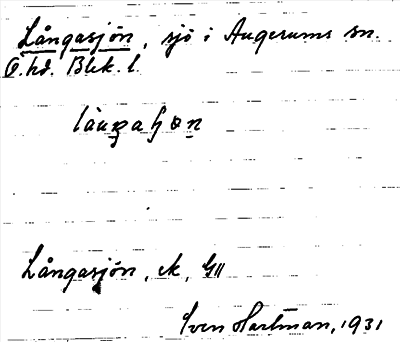 Långasjön, sjö i Augerums sn.
Ö. hd. Blek. l.
Långasjön, ek, G11
Sven Hartman, 1931